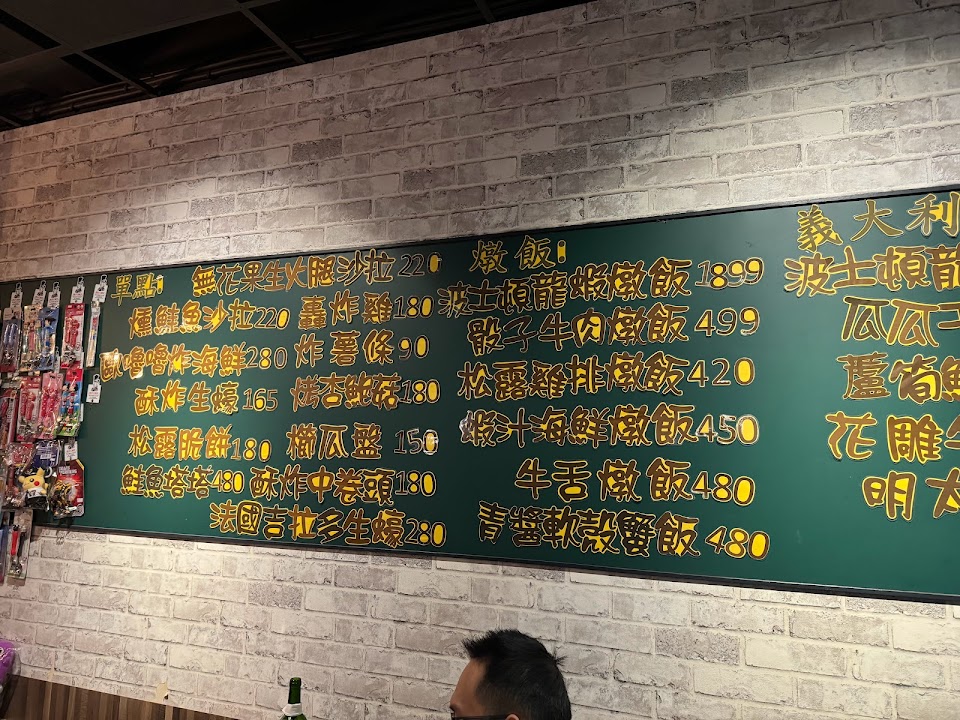 單點:
無花果生火腿沙拉220
燻鮭魚沙拉220 轟炸雞180
歐嚕嚕炸海鮮280 炸薯條90
酥炸生蠔165 烤杏鮑菇180
松露脆餅180 櫛瓜盤150
鮭魚塔塔480 酥炸中卷頭180
法國吉拉多生蠔280
燉飯:
波士頓龍蝦燉飯1899
骰子牛肉燉飯499
松露雞排燉飯420
蝦汁海鮮燉飯450
牛舌燉飯480
青醬軟殼蟹飯480
義大利
波士頓龍
瓜瓜
蘆筍鮮
花雕
明太